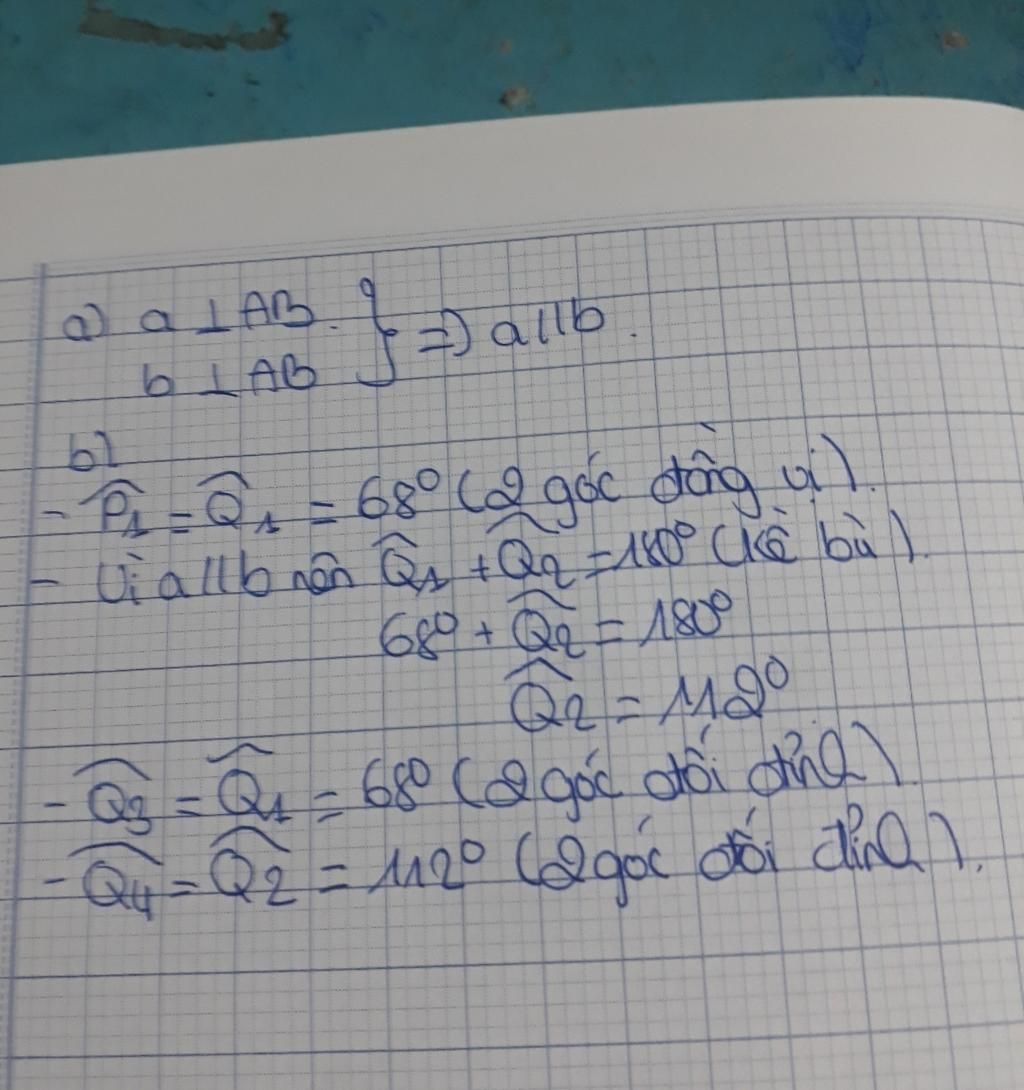 a) a ⊥ AB. } => a // b.
b ⊥ AB
b)
- P̂₁ = Q̂₁ = 68° (2 góc đồng vị).
- Vì a // b nên Q̂₁ + Q̂₂ = 180° (kề bù).
68° + Q̂₂ = 180°
Q̂₂ = 112°
- Q̂₃ = Q̂₁ = 68° (2 góc đối đỉnh)
- Q̂₄ = Q̂₂ = 112° (2 góc đối đỉnh).